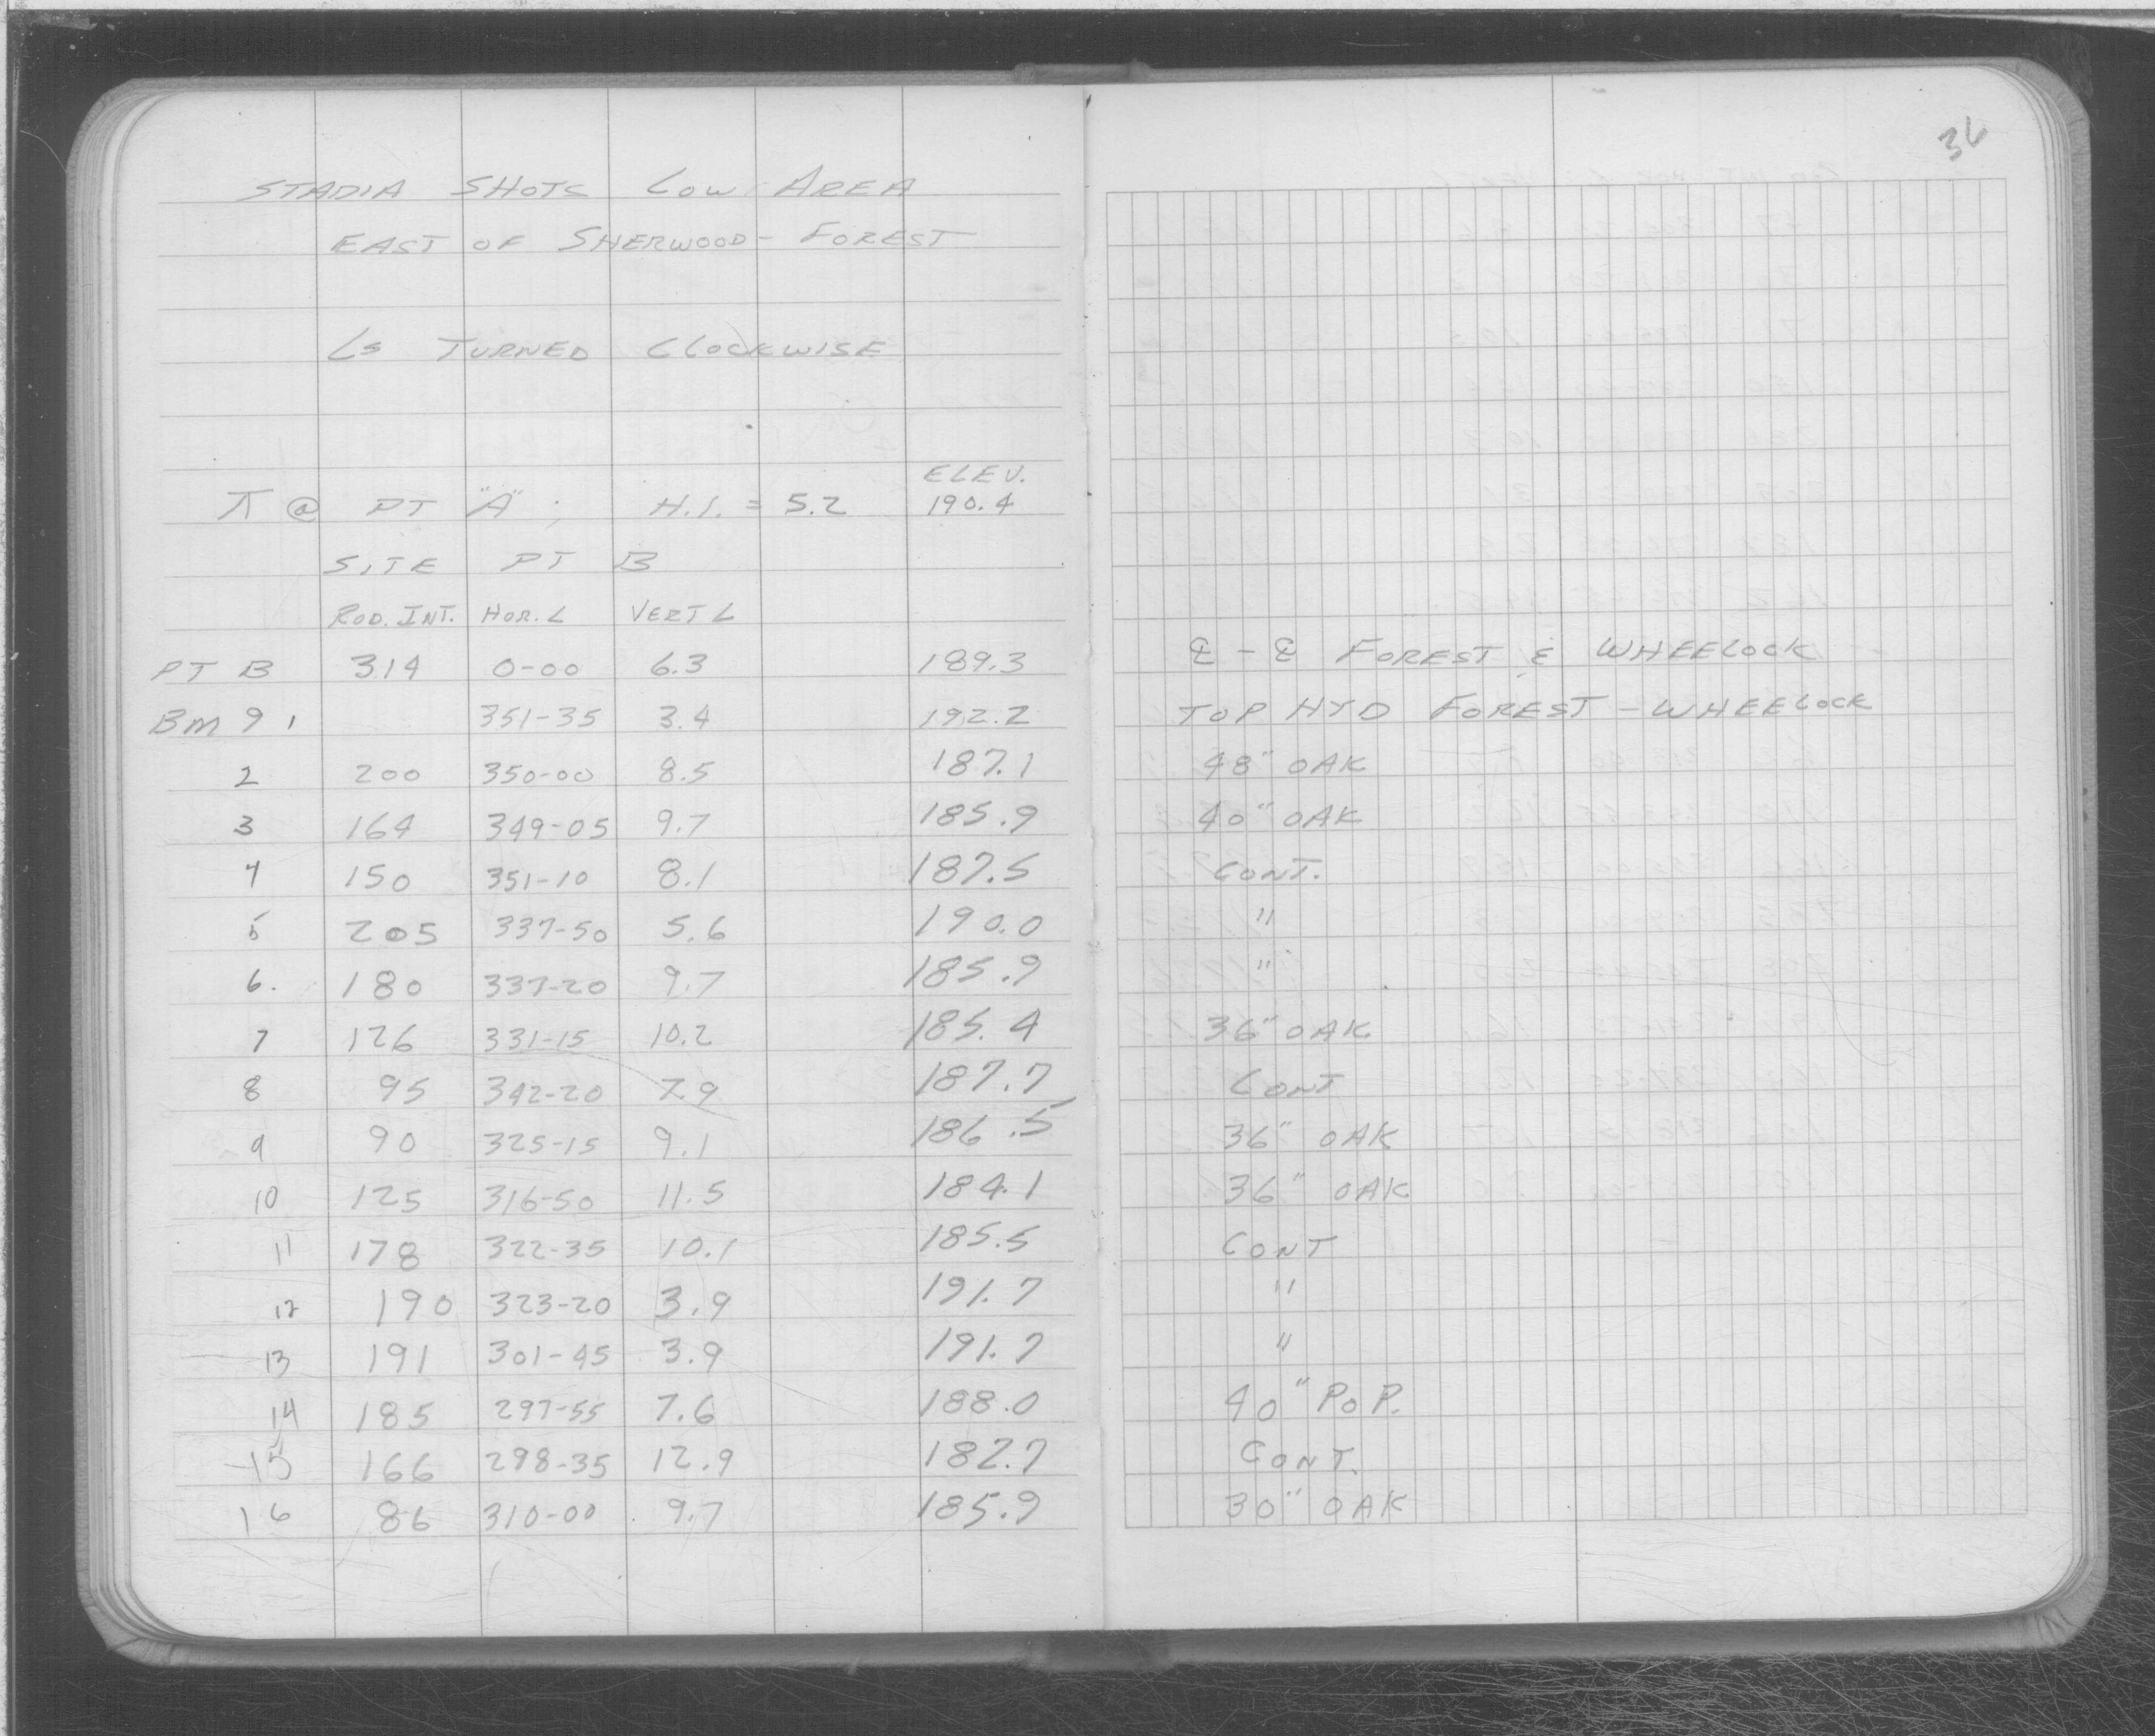 36
STADIA SHOTS LOW AREA
EAST OF SHERWOOD - FOREST
∠s TURNED CLOCKWISE
ELEV.
⊼ @ PT "A" ; H.I. = 5.2 190.4
SITE PT B
ROD. INT. HOR. ∠ VERT ∠
PT B 314 0-00 6.3 189.3 ℄ - ℄ FOREST & WHEELOCK
BM 9 1 351-35 3.4 192.2 TOP HYD FOREST - WHEELOCK
2 200 350-00 8.5 187.1 48" OAK
3 164 349-05 9.7 185.9 40" OAK
4 150 351-10 8.1 187.5 CONT.
5 205 337-50 5.6 190.0 "
6. 180 337-20 9.7 185.9 "
7 126 331-15 10.2 185.4 36" OAK
8 95 342-20 7.9 187.7 CONT
9 90 325-15 9.1 186.5 36" OAK
10 125 316-50 11.5 184.1 36" OAK
11 178 322-35 10.1 185.5 CONT
12 190 323-20 3.9 191.7 "
13 191 301-45 3.9 191.7 "
14 185 297-55 7.6 188.0 40" POP.
15 166 298-35 12.9 182.7 CONT.
16 86 310-00 9.7 185.9 30" OAK